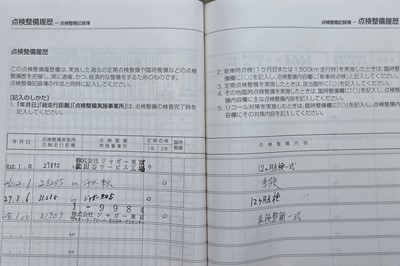 点検整備履歴 －点検整備記録簿
点検整備履歴
この点検整備履歴は、実施した過去の定期点検整備や臨時整備などの点検
整備歴を把握し、常に適確、かつ、経済的な整備をするためのものです。
記録簿の作成と同時に記載してください。
[記入のしかた]
1.「年月日」「総走行距離」「点検整備実施事業所」は、点検整備の検査完了時を
記入してください。
年月日
点検整備実施時
の総走行距離
点検整備
実施事業所
定期点検
1年
2年
臨時
整備
27892
株式会社ジャガー東京
世田谷サービス工場
ジャガー東京
27.3.6
1-9984
31909
株式会社ジャガー東京
点検整備記録簿－点検整備履歴
2. 新車時点検(1か月目または1,600km走行時)を実施したときは、臨時整
備欄に「○」を記入し、点検整備内容欄に「新車時点検」と記入してください。
3. 定期点検整備を実施したときは、定期点検欄に「○」を記入してください。
4. その他臨時点検整備を実施したときは、臨時整備欄に「○」を記入し、点検整
備内容欄に主な点検整備内容を記入してください。
5. リコール対策を実施したときは、臨時整備欄に「○」を記入し、点検整備内
容欄にその対策内容を記入してください。
点検整備内容
12ヶ月点検一式
車検
12ヶ月点検
車検整備一式